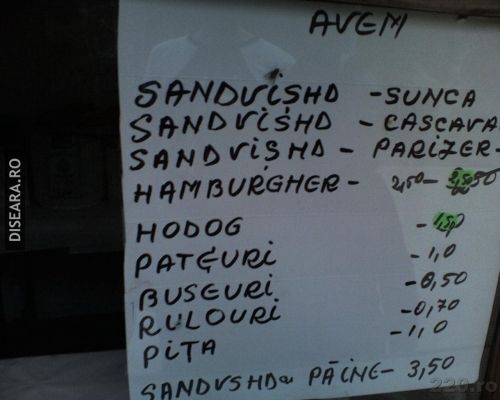 AVEM
SANDVIȘHD - SUNCA
SANDVIȘHD - CASCAVA
SANDVISHD - PARIZER -
HAMBURGHER - 2,50 -
HODOG - 1,50
PATEURI - 1,0
BUSEURI - 0,50
RULOURI - 0,70
PIȚA - 1,0
SANDVSHD PÂINE - 3,50
DISEARA.RO
220.ro